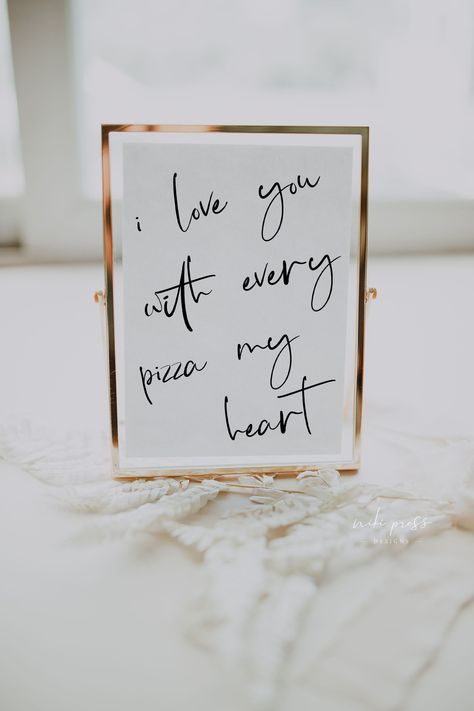 i love you
with every
pizza my
heart
niki press
DESIGNS